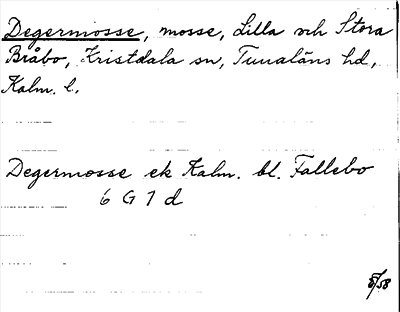 Degermosse, mosse, Lilla och Stora
Bråbo, Kristdala sn, Tunaläns hd,
Kalm. l.
Degermosse ek Kalm. bl. Fallebo
6 G 1 d